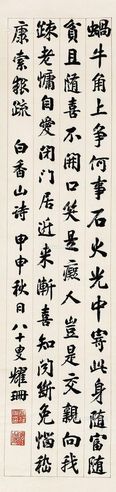 蝸牛角上争何事石火光中寄此身随富随
貧且随喜不開口笑是癡人豈是交親向我
疎老慵自愛閉門居近来漸喜知聞断免惱嵇
康索報疏 白香山詩 甲申秋日八十叟耀珊